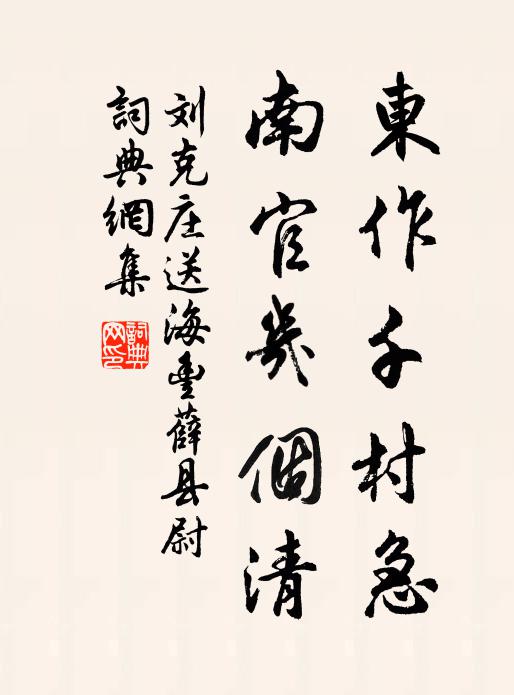 東作千村急
南官幾個清
刘克庄送海豐薛县尉
詞典網集
詞典
网印